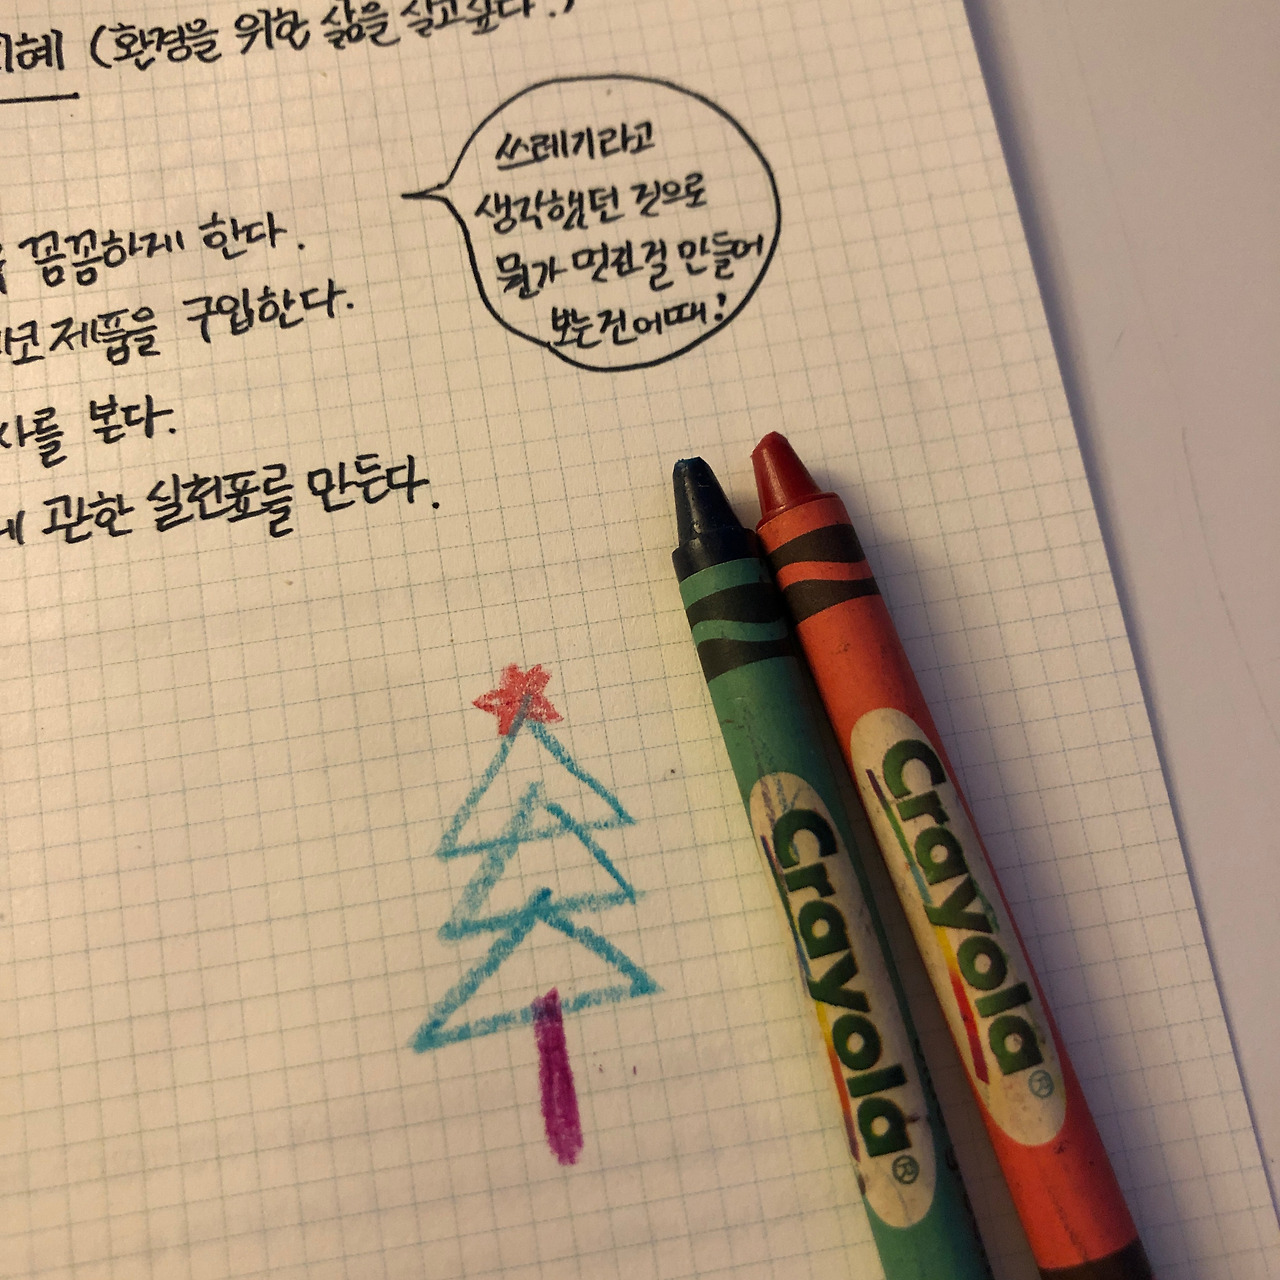 지혜 (환경을 위한 삶을 살고싶다.)
쓰레기라고
생각했던 것으로
뭔가 멋진걸 만들어
보는건 어때!
꼼꼼하게 한다.
제품을 구입한다.
를 본다.
관한 실천표를 만든다.
Crayola®
Crayola®